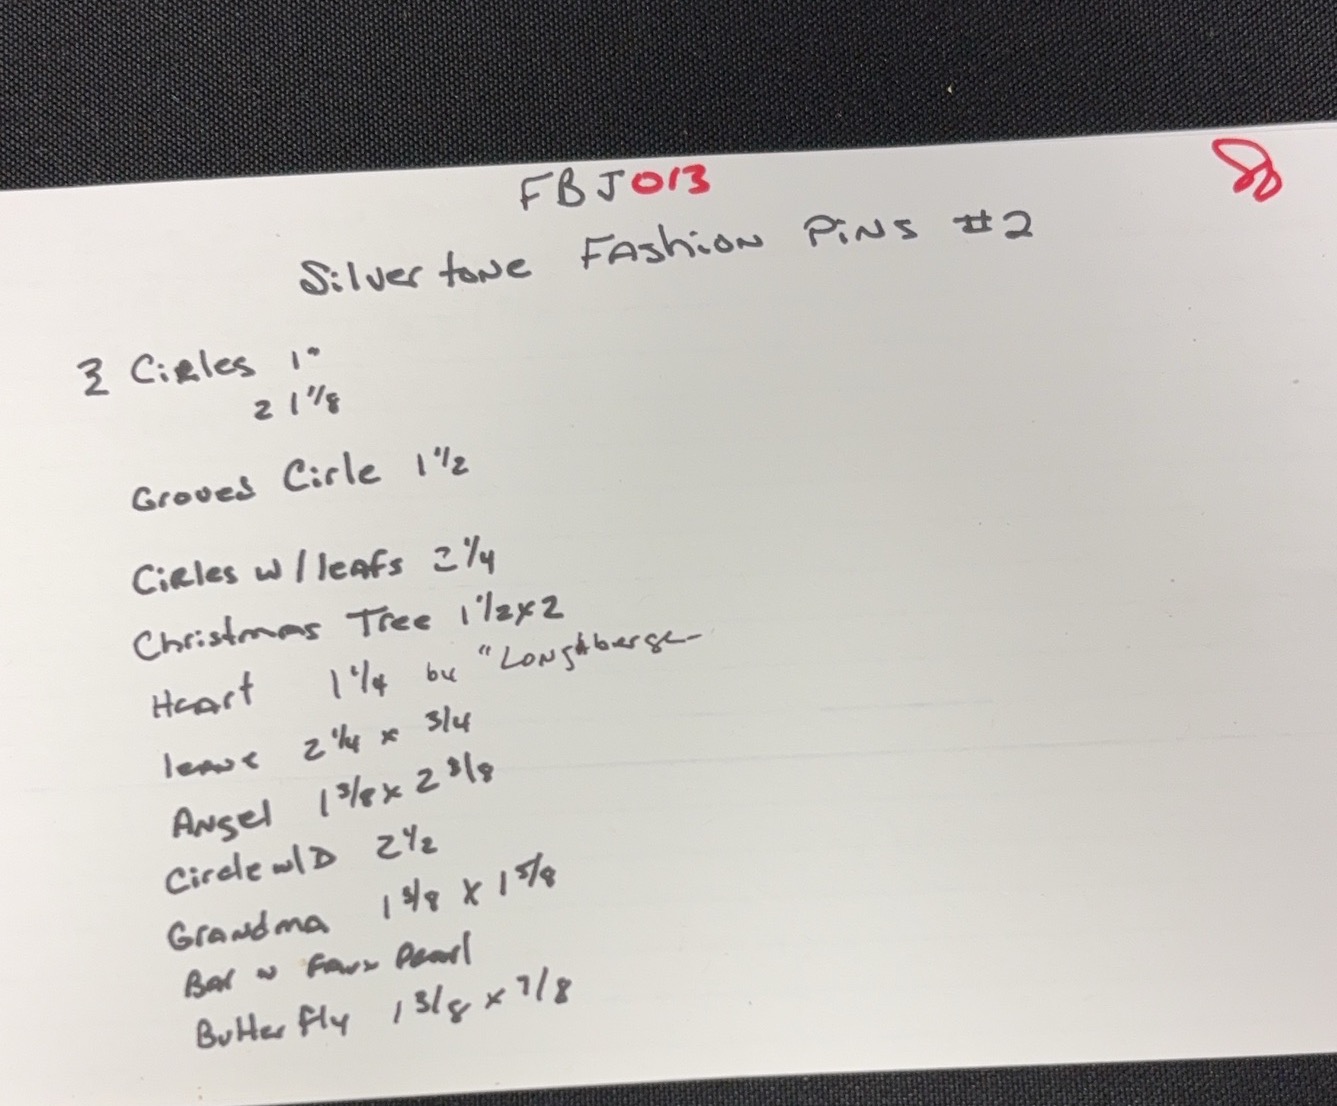 FBJ013
Silvertone Fashion Pins #2
3 Cirles 1"
2 1 1/8
Groved Cirle 1 1/2
Cirles w/leafs 2 1/4
Christmas Tree 1 1/2 x 2
Heart 1 1/4 by "Longaberger
leave 2 1/4 x 3/4
Angel 1 3/8 x 2 3/8
Circle w/D 2 1/2
Grandma 1 5/8 x 1 5/8
Bar w Faux Pearl
Butterfly 1 3/8 x 7/8